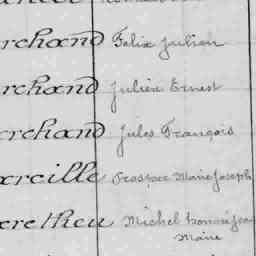 rchand Felix Julien
rchand Julien Ernest
rchand Jules François
areille Prosper Marie Joseph
arethieu Michel honoré Jean
Marie